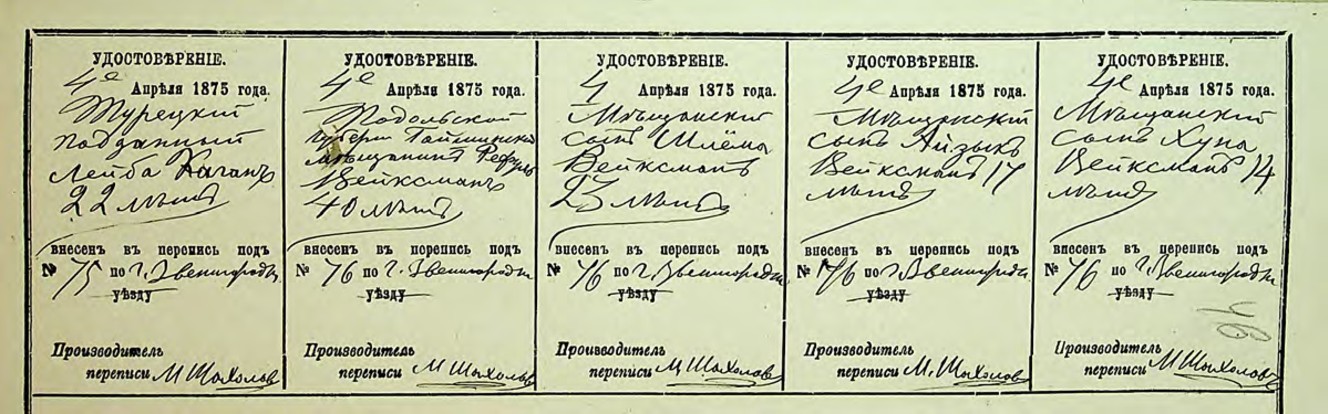 УДОСТОВѢРЕНІЕ.
4го Апрѣля 1875 года.
Турецкій
подданный
Лейба Каганъ
22 лѣтъ
внесенъ въ перепись подъ
№ 75 по г. Звенигородкѣ
уѣзду
Производитель
переписи
УДОСТОВѢРЕНІЕ.
4го Апрѣля 1875 года.
Подольской
губерніи
мѣщанинъ
Вейксманъ
40 лѣтъ
внесенъ въ перепись подъ
№ 76 по г. Звенигородкѣ
уѣзду
Производитель
переписи
УДОСТОВѢРЕНІЕ.
4 Апрѣля 1875 года.
Мѣщанскій
сынъ Шлёма
Вейксманъ
23 лѣтъ
внесенъ въ перепись подъ
№ 76 по г. Звенигородкѣ
уѣзду
Производитель
переписи
УДОСТОВѢРЕНІЕ.
4го Апрѣля 1875 года.
Мѣщанскій
сынъ Айзыкъ
Вейксманъ 17
лѣтъ
внесенъ въ перепись подъ
№ 76 по г. Звенигородкѣ
уѣзду
Производитель
переписи
УДОСТОВѢРЕНІЕ.
4го Апрѣля 1875 года.
Мѣщанскій
сынъ Хуна
Вейксманъ 14
лѣтъ
внесенъ въ перепись подъ
№ 76 по г. Звенигородкѣ
уѣзду
Производитель
переписи